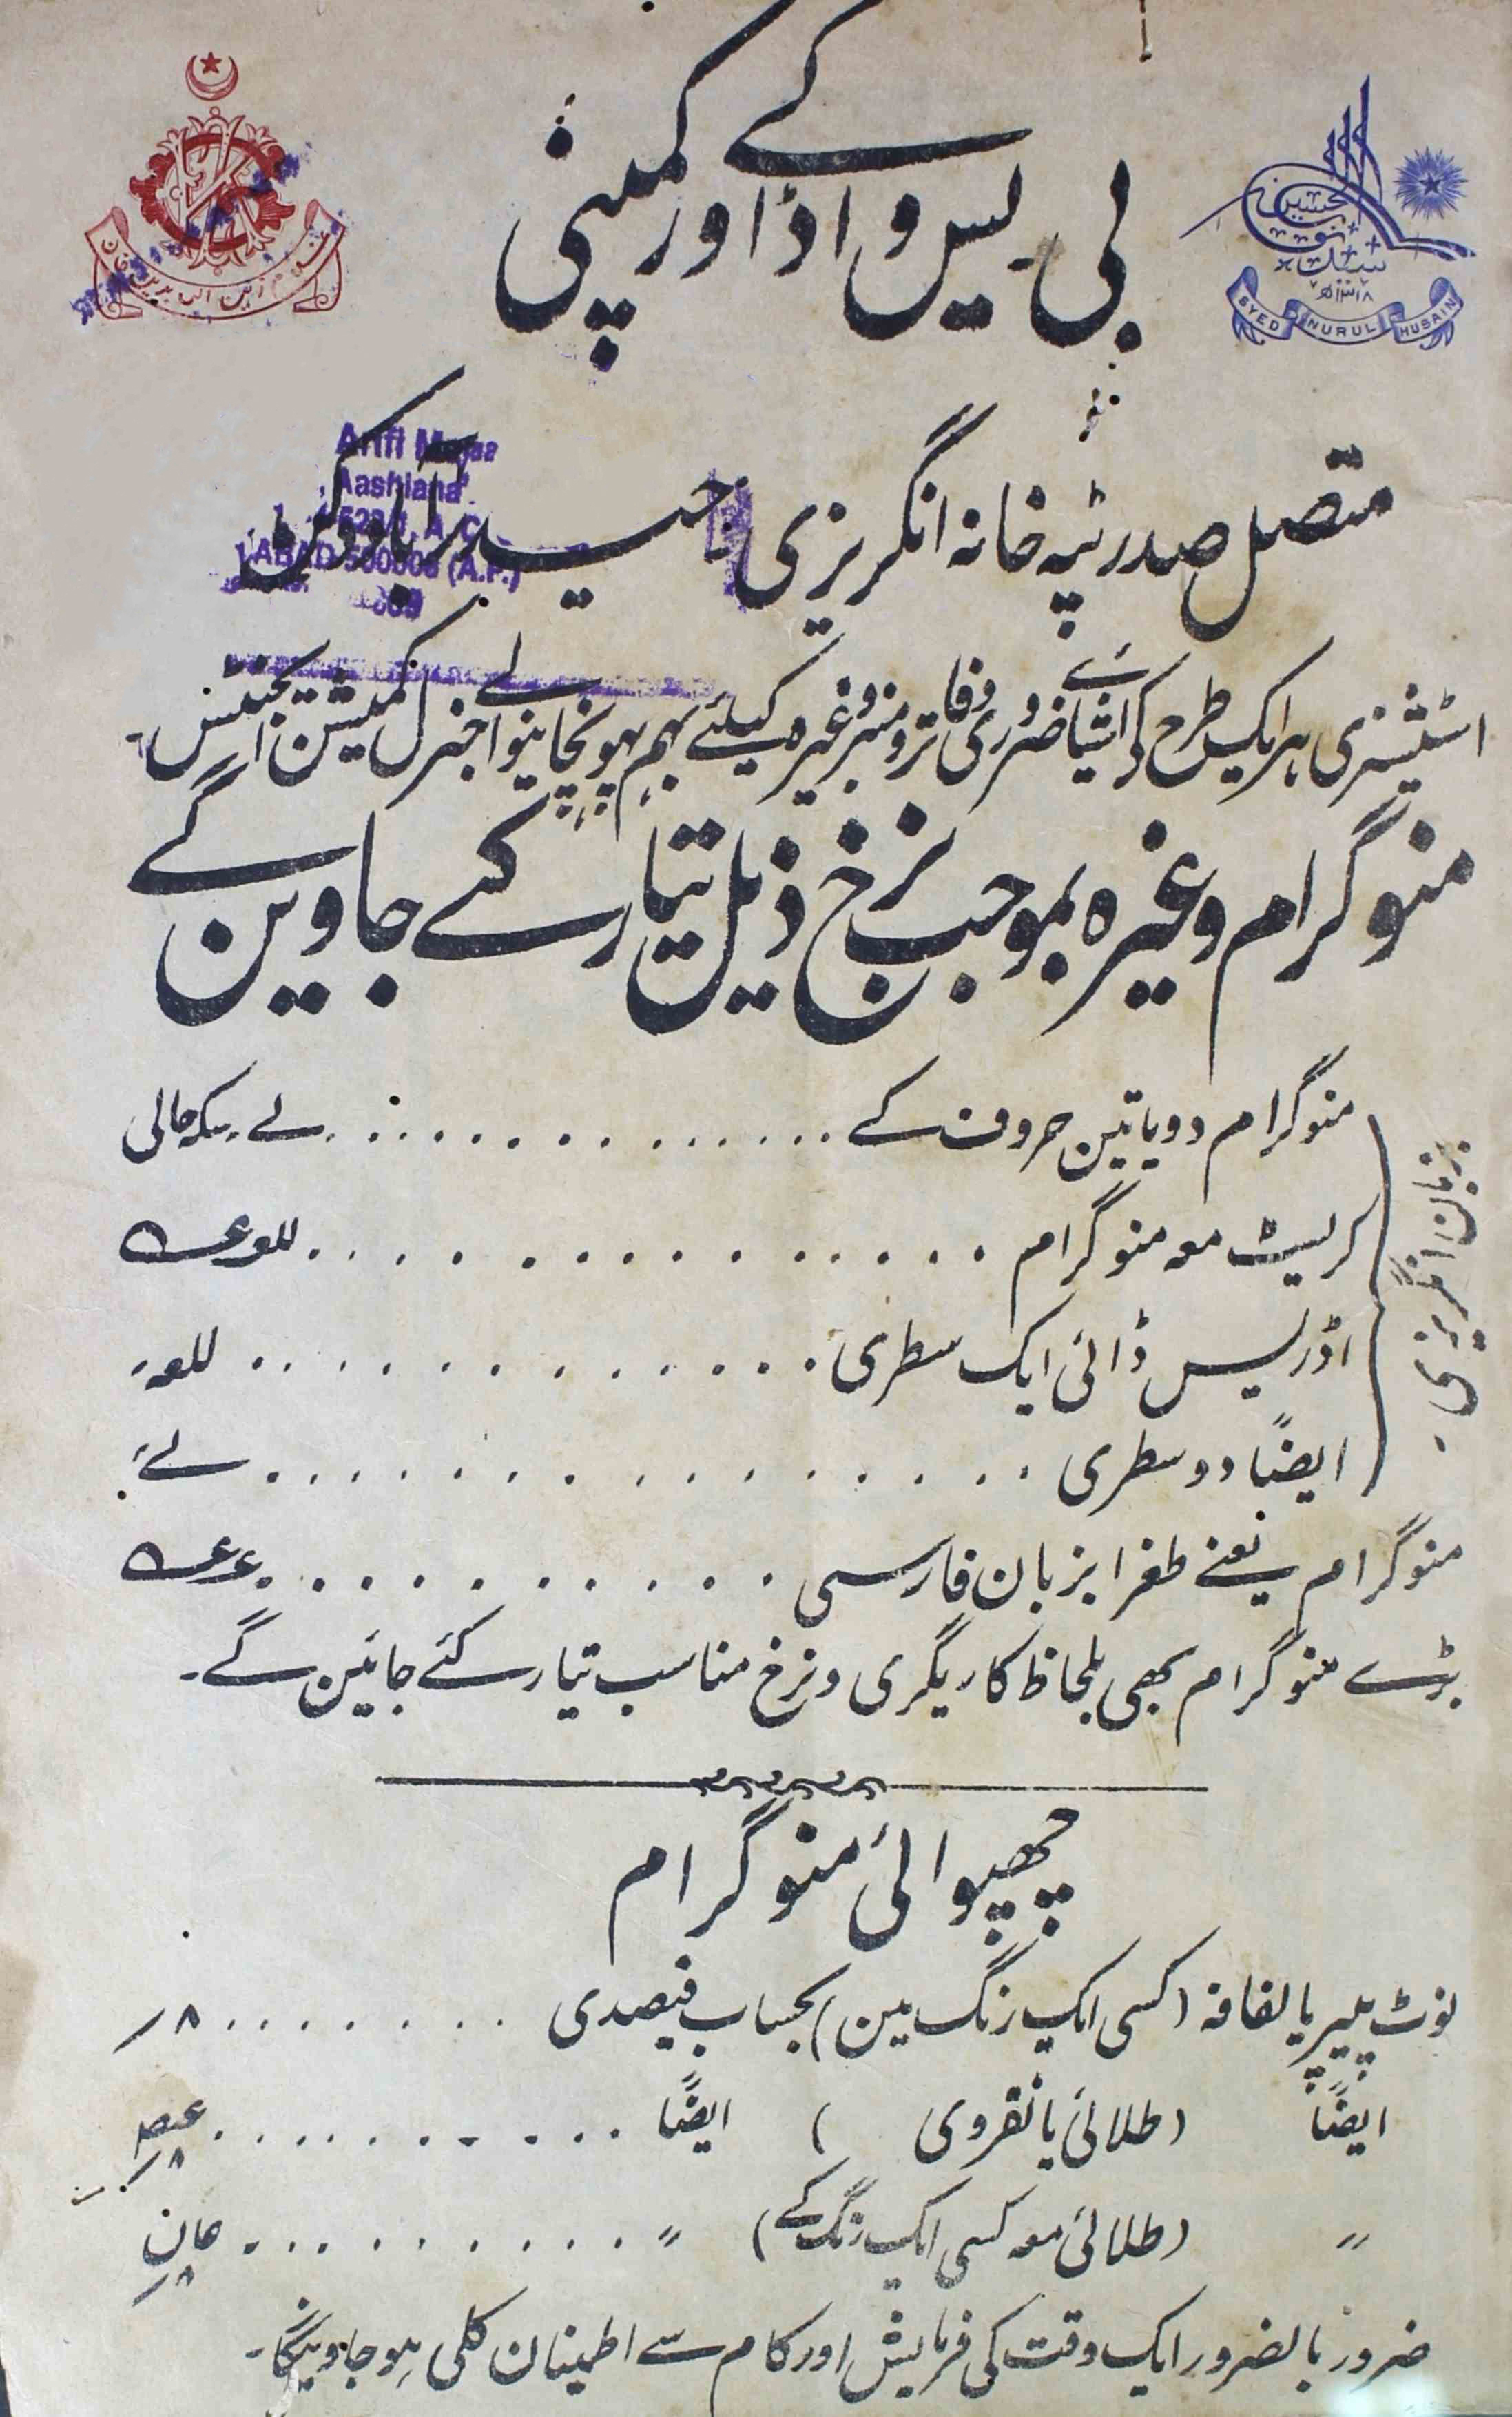 سید نور الحسین
۱۳۱۸ھ
SYED NURUL HUSAIN
پی یس واڈاور کے کمپنی
متصل صدر ٹپہ خانہ انگریزی حیدرآباد دکن
Aashiana
ABAD 500008 (A.P.)
اسٹیشنری ہر ایک طرح کی اشیائے ضروری دفاتر و منبر وغیرہ کیلئے بہم پہونچانیوالے جنرل کمیشن ایجنٹس۔
منوگرام وغیرہ بموجب نرخ ذیل تیار کئے جاوین گے
بزبان انگریزی
منوگرام دو یا تین حروف کے . . . . . سکہ حالی
کریسٹ معہ منوگرام . . . . .
اڈریس ڈائی ایک سطری . . . . .
ایضًا دو سطری . . . . .
منوگرام یعنے طغرا بزبان فارسی . . . . .
بڑے منوگرام بھی بلحاظ کاریگری و نرخ مناسب تیار کئے جائین گے۔
چھپوائی منوگرام
نوٹ پیپر یا لفافہ (کسی ایک رنگ مین) بحساب فیصدی . . . . . ۸؍
ایضًا (طلائی یا نقروی) ایضًا . . . . . ۸؍
〃 (طلائی معہ کسی ایک رنگ کے) 〃 . . . . . ۸؍
ضرور بالضرور ایک وقت کی فرمایش اور کام سے اطمینان کلی ہو جاویگا۔